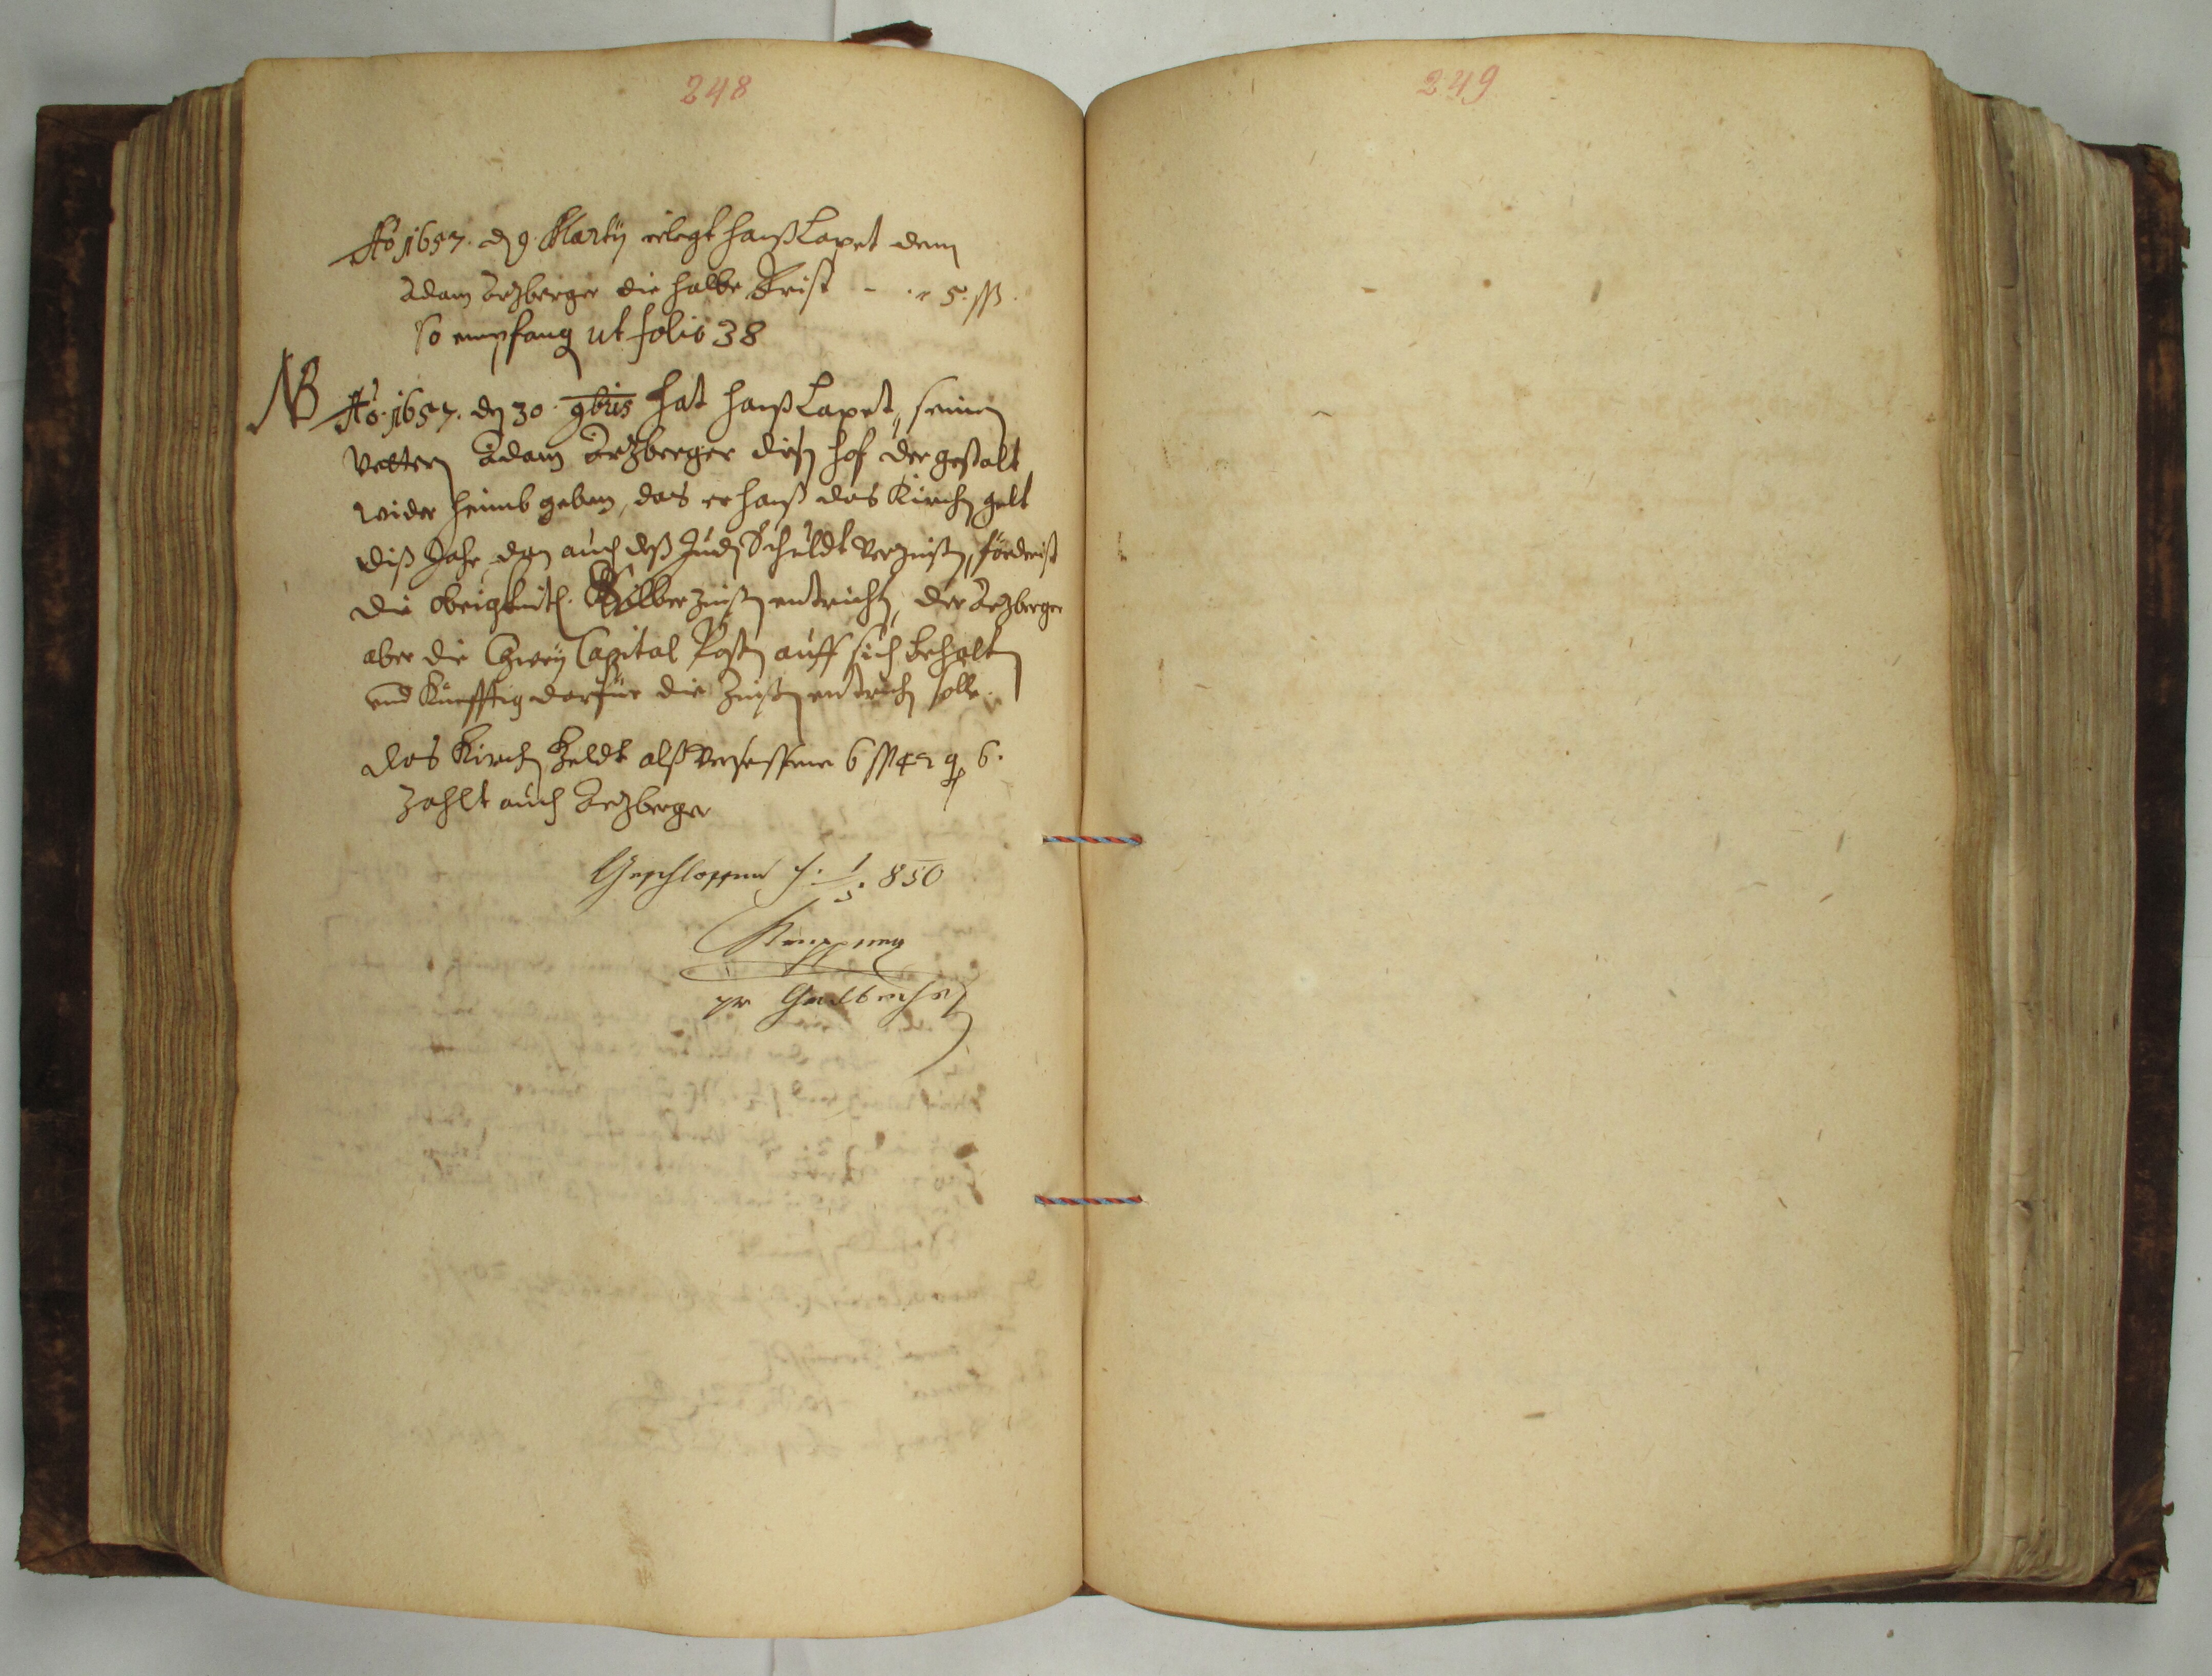 248
249
Aō 1657. dē 9. Martij erlegt Hanß Lapet dem
Adam Artzberger die halbe Frist - 5. ßß.
so empfang ut folio 38
NB Aō. 1657. dē 30. 9bris hat Hanß Lapet, seinen
Vettern Adam Artzberger diesen Hof der gestalt
wider heimb geben, das er Hanß das Kirchen gelt
diß Jahr, auch deß Schuldt Verzinsen, förderist
die Obrigkeitl. Silberzinsen entrichten, der Artzberger
aber die Zwey Capital Posten auff sich behalten
und Künfftig darfür die Zinsen entrichten solle.
das Kirchen Geldt alß Versessene 6 ßß 6.
zahlt auch Artzberger
Geschlossen 850
Grundbuchs